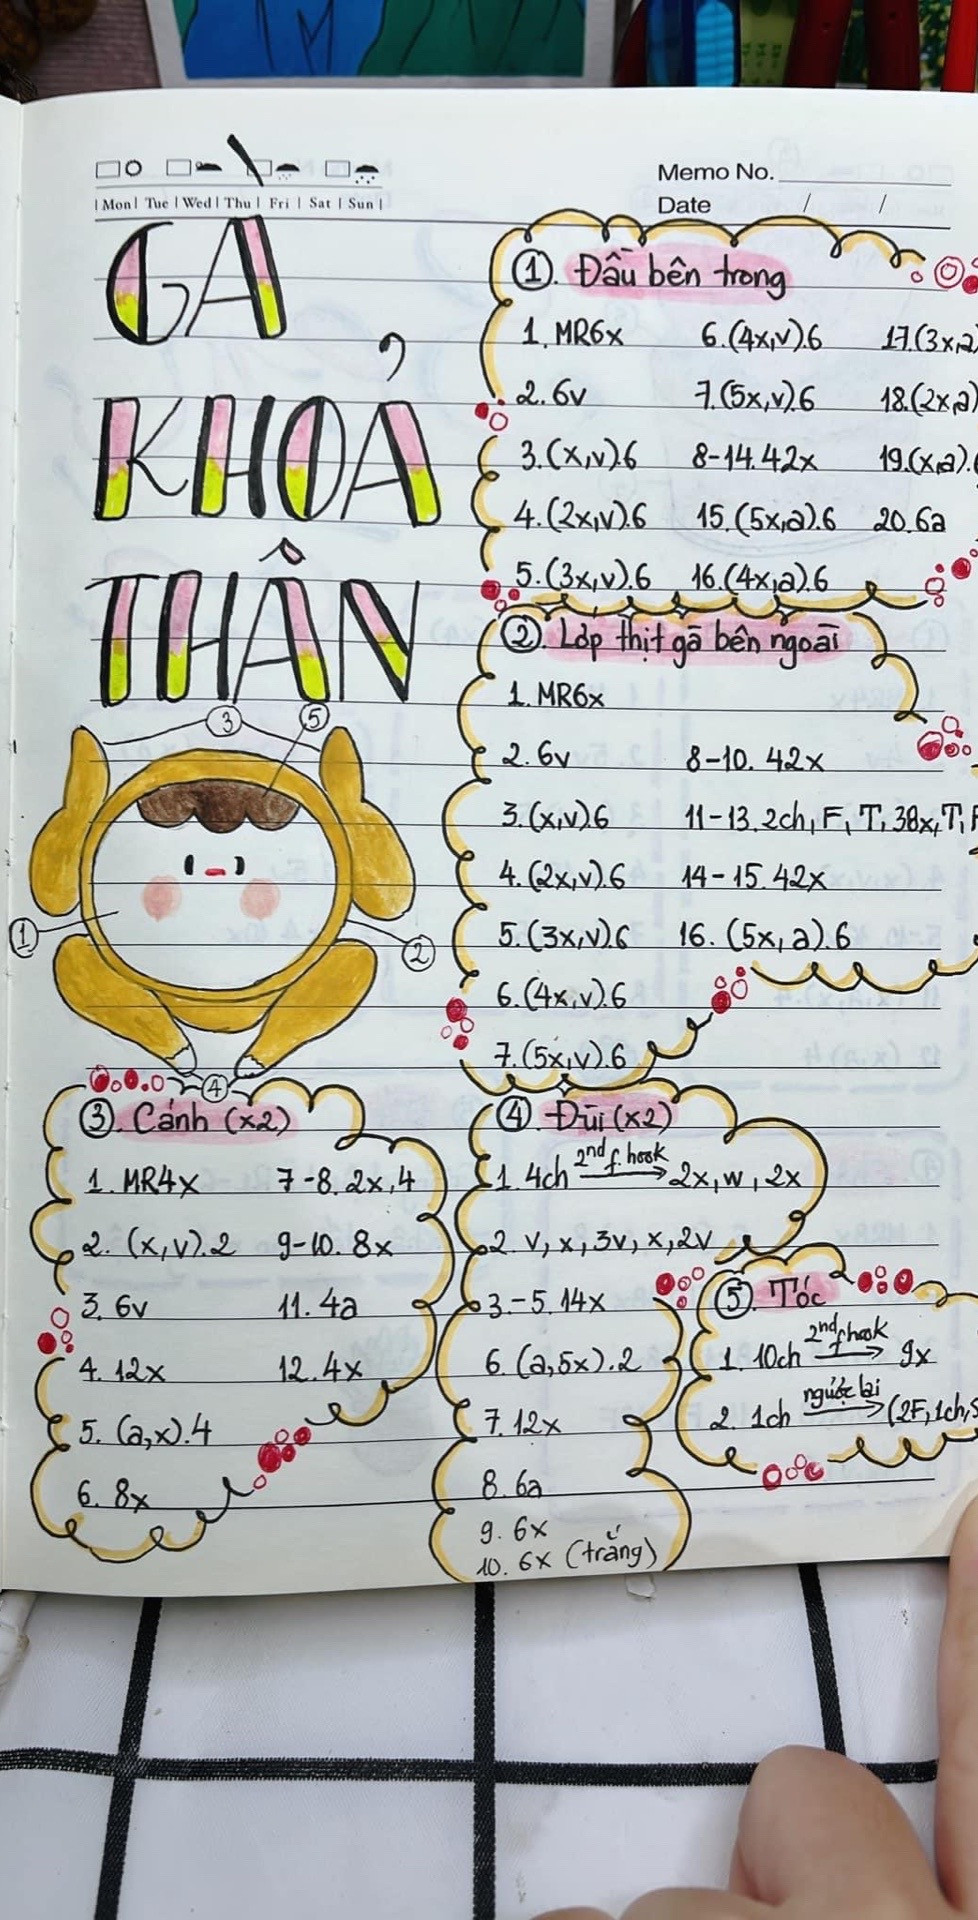 Memo No.
| Mon | Tue | Wed | Thu | Fri | Sat | Sun |
Date / /
GÀ
KHOẢ
THÂN
3 5
1
2
4
①. Đầu bên trong
1. MR6x 6. (4x,v).6 17. (3x,a
2. 6v 7. (5x,v).6 18. (2x,a)
3. (x,v).6 8-14. 42x 19. (x,a).6
4. (2x,v).6 15. (5x,a).6 20. 6a
5. (3x,v).6 16. (4x,a).6
②. Lớp thịt gà bên ngoài
1. MR6x
2. 6v 8-10. 42x
3. (x,v).6 11-13. 2ch, F, T, 38x, T, F
4. (2x,v).6 14-15. 42x
5. (3x,v).6 16. (5x,a).6
6. (4x,v).6
7. (5x,v).6
③. Cánh (x2)
1. MR4x 7-8. 2x,4
2. (x,v).2 9-10. 8x
3. 6v 11. 4a
4. 12x 12. 4x
5. (a,x).4
6. 8x
④. Đùi (x2)
1. 4ch 2nd f. hook → 2x, w, 2x
2. v, x, 3v, x, 2v
3.-5. 14x
6. (a,5x).2
7. 12x
8. 6a
9. 6x
10. 6x (trắng)
⑤. Tóc
1. 10ch 2nd f hook → 9x
2. 1ch ngược lại → (2F, 1ch, S